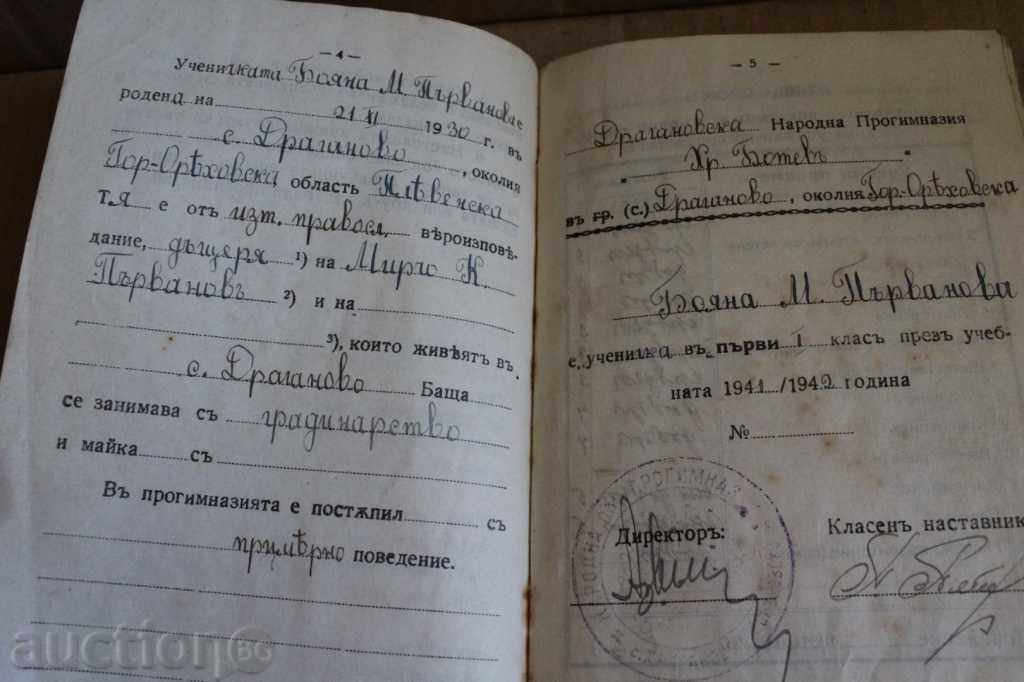 — 4 —
Ученичката Бояна М. Първанова е
родена на 21 XI 1930 г. въ
с. Драганово, околия
Гор-Орѣховска область Плѣвенска
т.я е отъ изт. правосл. вѣроизповѣ-
дание, дъщеря ¹) на Мирчо К.
Първановъ ²) и на
³), които живѣятъ въ
с. Драганово Баща
се занимава съ градинарство
и майка съ
Въ прогимназията е постѫпил съ
примѣрно поведение.
auction.bg
— 5 —
Драгановска Народна Прогимназия
„ Хр. Ботевъ "
въ гр. (с.) Драганово, околия Гор-Орѣховска
Бояна М. Първанова
е ученичка въ първи I класъ презъ учеб-
ната 1941/1942 година
№
Директоръ:
Класенъ наставник
НАРОДНА ПРОГИМНАЗ